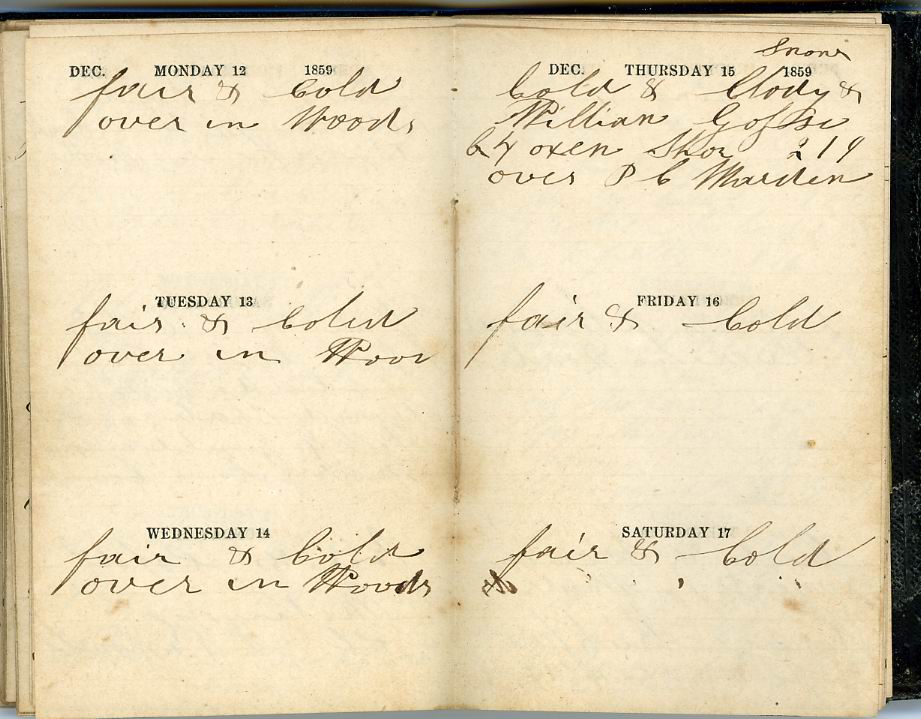 DEC. MONDAY 12 1859
fair & Cold
over in Woods
TUESDAY 13
fair & Cold
over in Woo
WEDNESDAY 14
fair & Cold
over in Woods
Snow
DEC. THURSDAY 15 1859
Cold & Clody &
Willian
oxen 219
over P C Marden
FRIDAY 16
fair & Cold
SATURDAY 17
fair & Cold